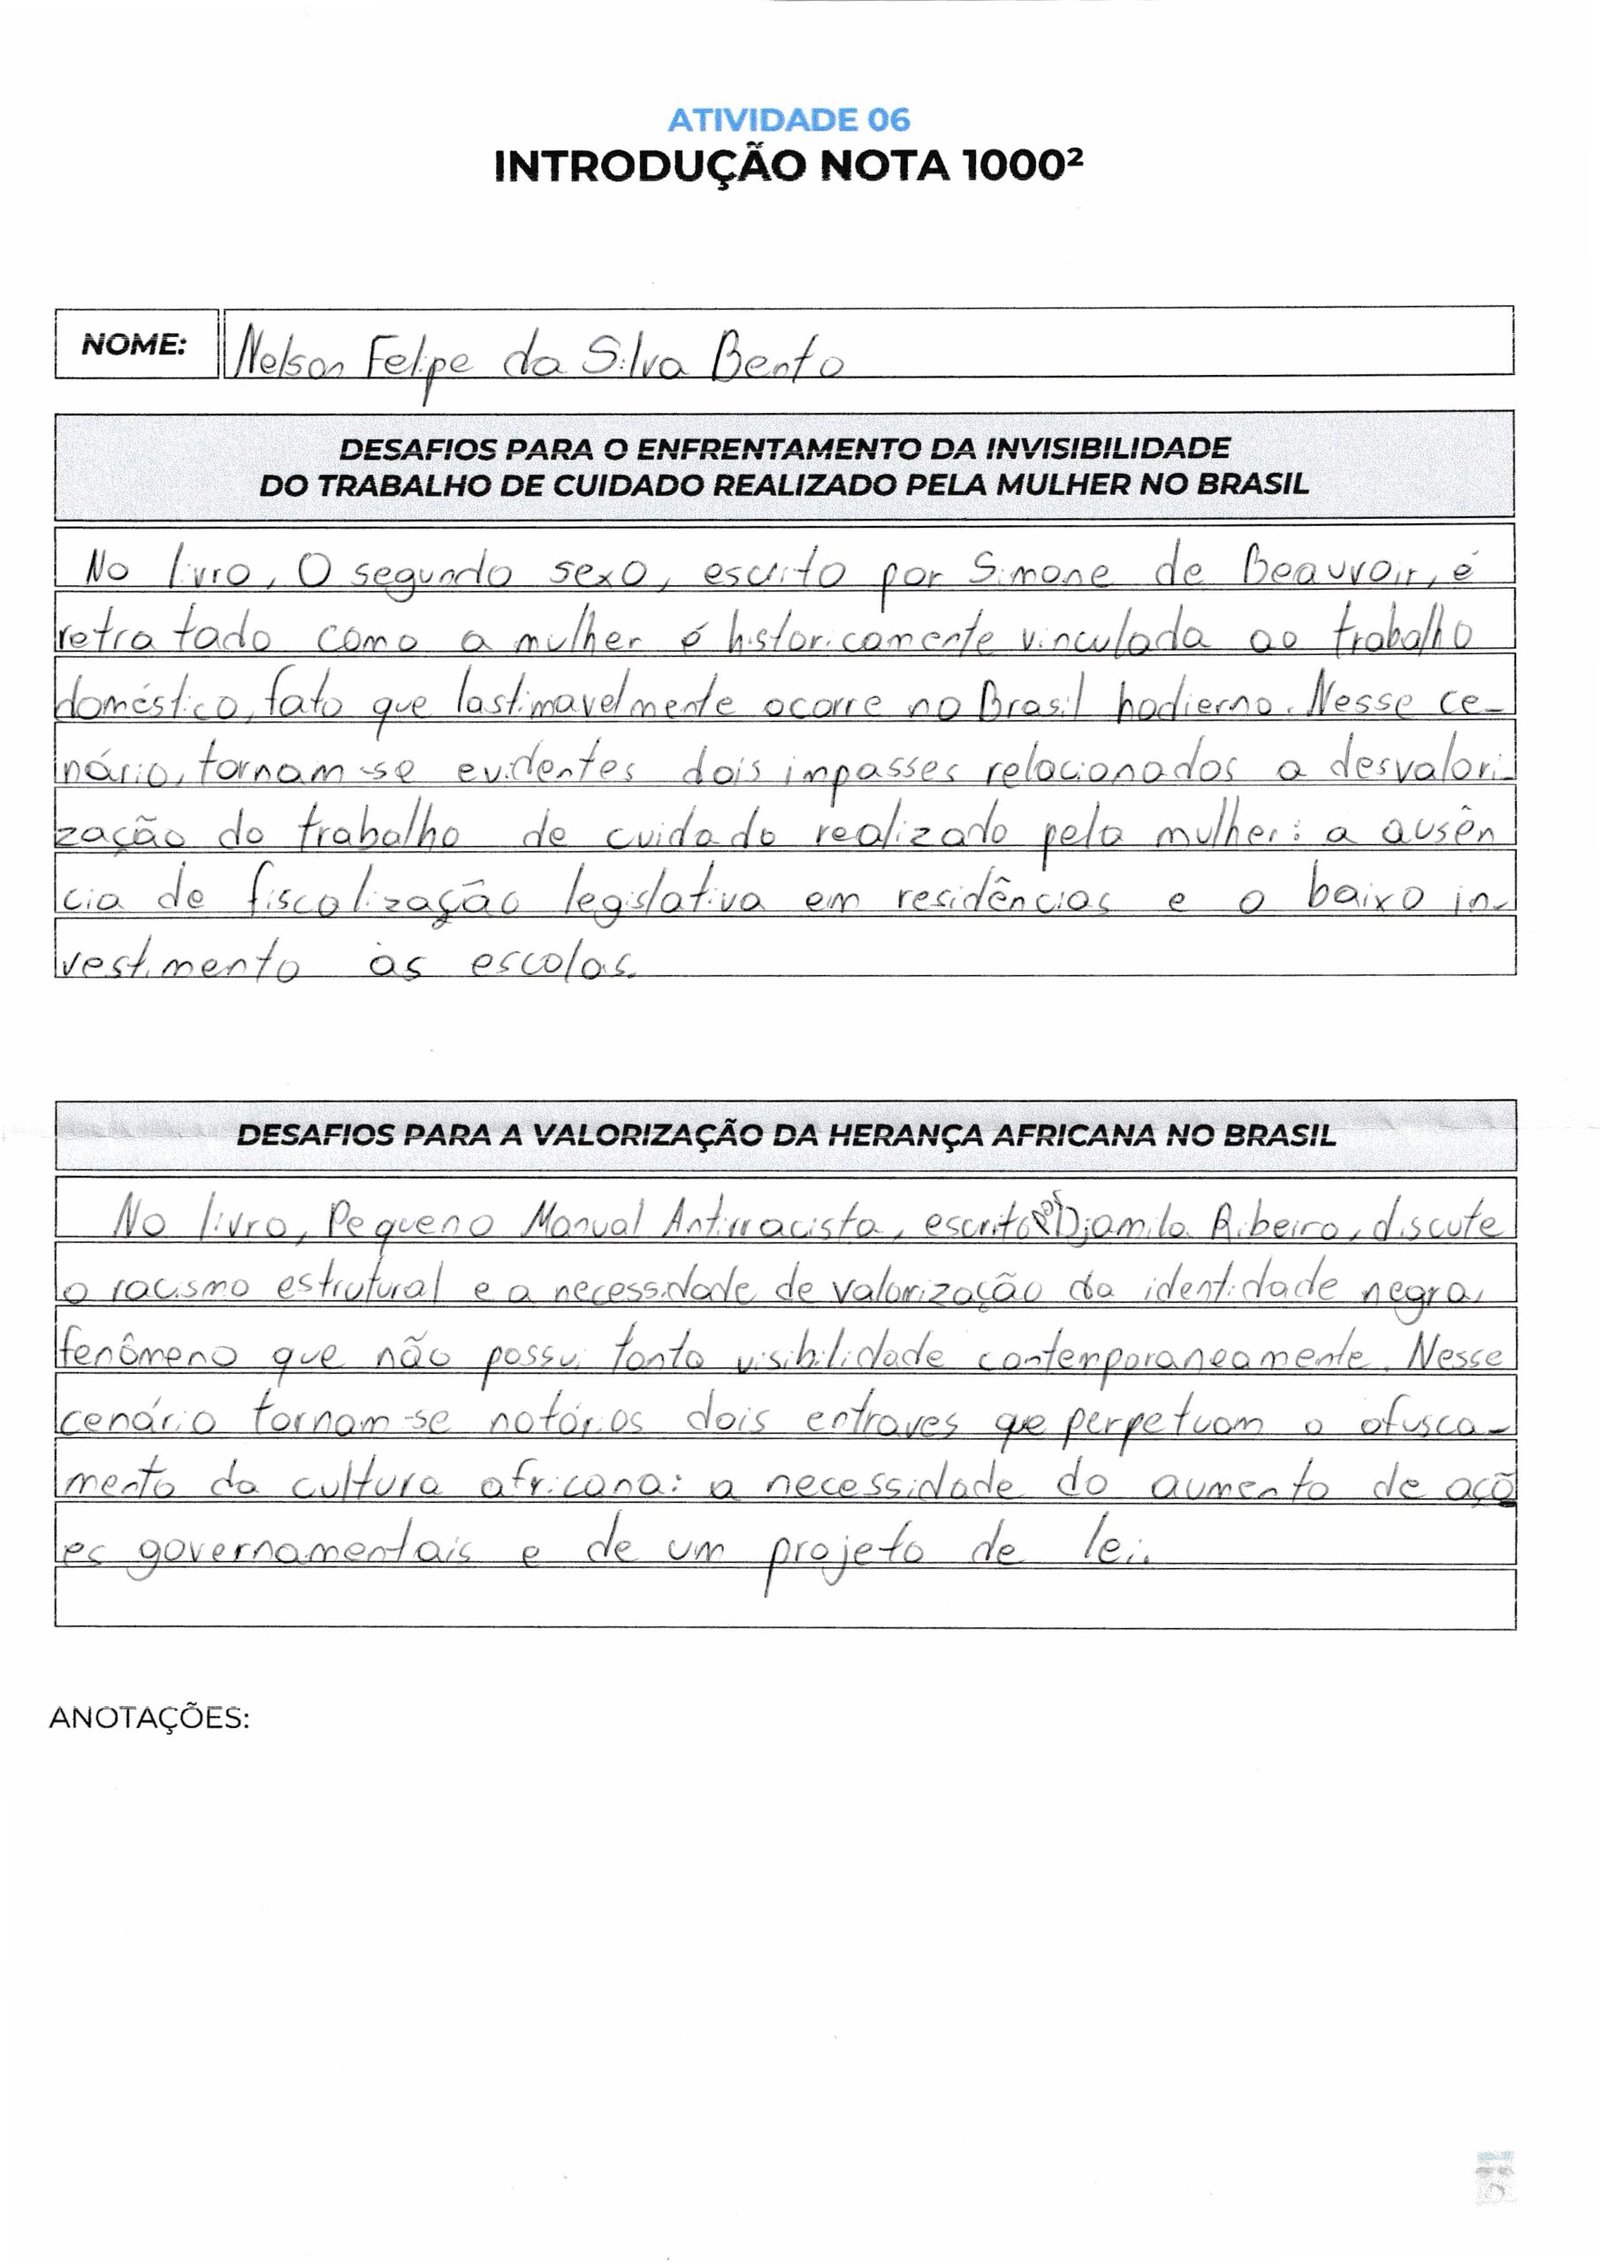 ATIVIDADE 06
INTRODUÇÃO NOTA 1000²
NOME: Nelson Felipe da Silva Bento
DESAFIOS PARA O ENFRENTAMENTO DA INVISIBILIDADE
DO TRABALHO DE CUIDADO REALIZADO PELA MULHER NO BRASIL
No livro, O segundo sexo, escrito por Simone de Beauvoir, é
retratado como a mulher é historicamente vinculada ao trabalho
doméstico, fato que lastimavelmente ocorre no Brasil hodierno. Nesse ce-
nário, tornam-se evidentes dois impasses relacionados a desvalori-
zação do trabalho de cuidado realizado pela mulher: a ausên
cia de fiscalização legislativa em residências e o baixo in-
vestimento às escolas.
DESAFIOS PARA A VALORIZAÇÃO DA HERANÇA AFRICANA NO BRASIL
No livro, Pequeno Manual Antirracista, escrito por Djamila Ribeiro, discute
o racismo estrutural e a necessidade de valorização da identidade negra,
fenômeno que não possui tanta visibilidade contemporaneamente. Nesse
cenário tornam-se notórios dois entraves que perpetuam o ofusca-
mento da cultura africana: a necessidade do aumento de açõ
es governamentais e de um projeto de lei.
ANOTAÇÕES: